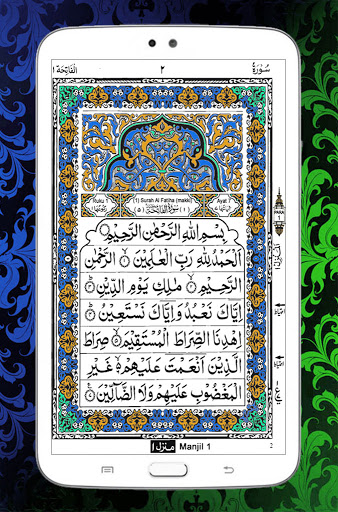 الْفَاتِحَة ١
٢
سُوْرَةُ
Ruku 1
(1) Surah Al Fatiha (makki)
Ayat 7
PARA
1
بِسْمِ اللهِ الرَّحْمٰنِ الرَّحِيْمِ
اَلْحَمْدُ لِلّٰهِ رَبِّ الْعٰلَمِيْنَ ۙ الرَّحْمٰنِ
الرَّحِيْمِ ۙ مٰلِكِ يَوْمِ الدِّيْنِ ؕ
اِيَّاكَ نَعْبُدُ وَاِيَّاكَ نَسْتَعِيْنُ ؕ
اِهْدِنَا الصِّرَاطَ الْمُسْتَقِيْمَ ۙ صِرَاطَ
الَّذِيْنَ اَنْعَمْتَ عَلَيْهِمْ ۙ غَيْرِ
الْمَغْضُوْبِ عَلَيْهِمْ وَلَا الضَّآلِّيْنَ
منزل ١ Manjil 1
2